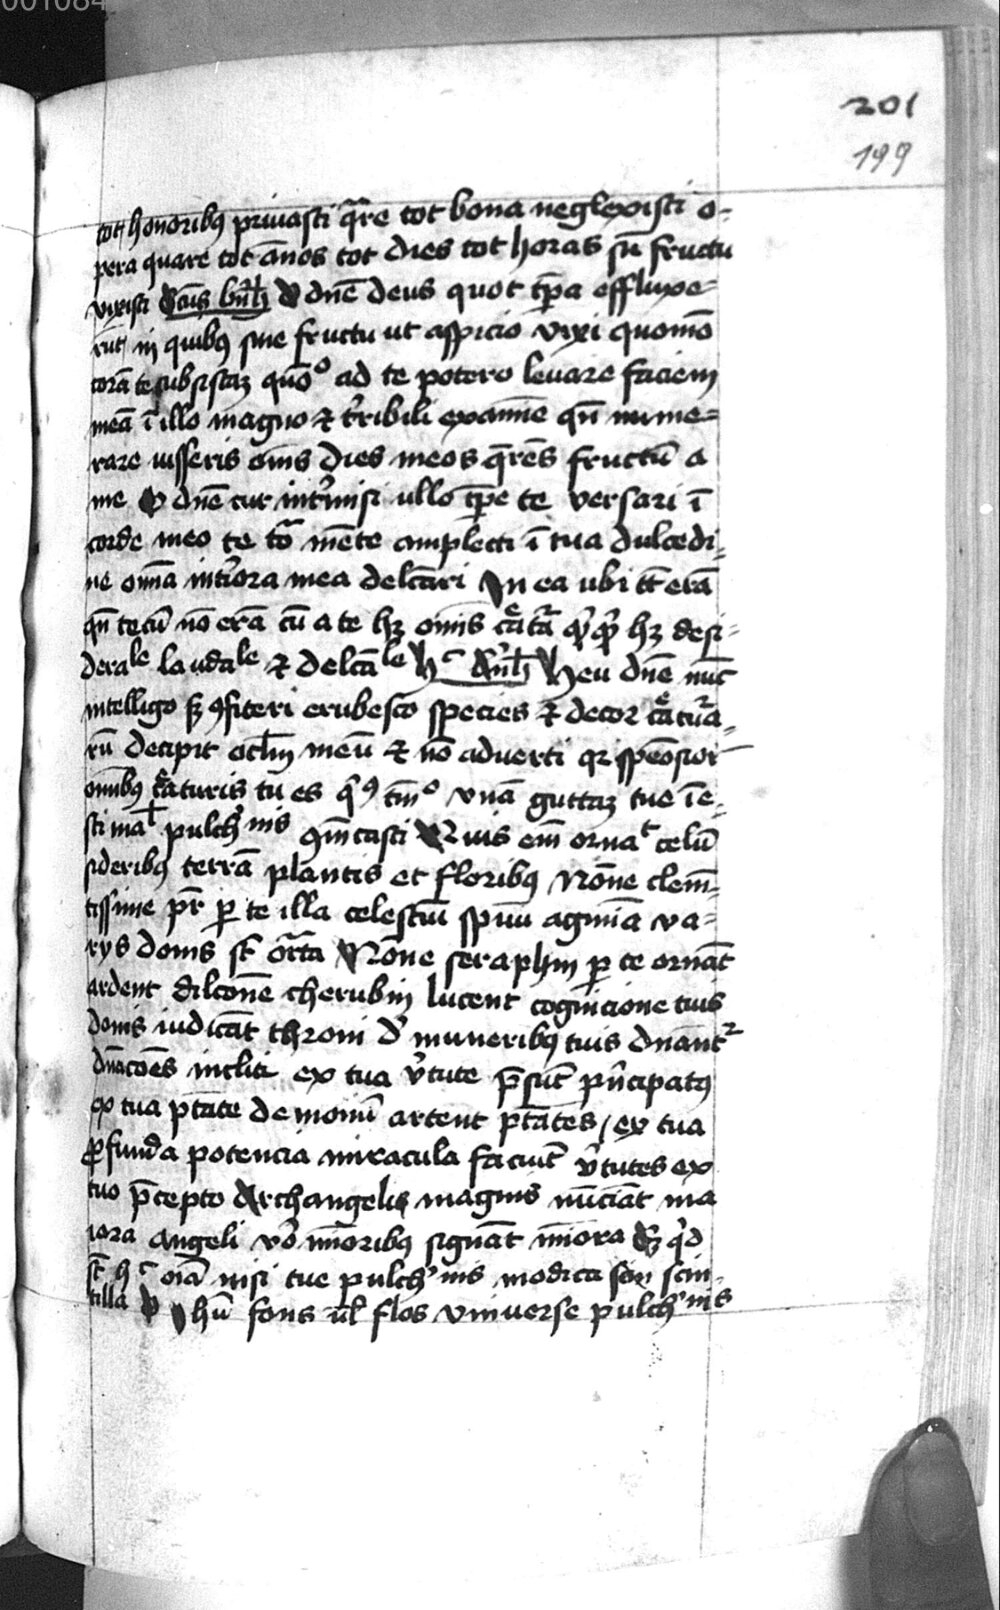 001084
201
199
tot honoribꝯ priuasti qͣre tot bona neglexisti o-
pera quare tot ānos tot dies tot horas sn̄ fructu
vixisti Scūs bn̄h O dn̄e deus quot tp̄a effluxe-
rūt in quibꝯ sine fructu ut aspicio vixi quomō
corā te subsistaꝫ quōº ad te potero leuare faciem
meā ī illo magno ⁊ tͬribili examīe qn̄ nume-
rare iusseris om̄s dies meos qͬrēs fructū a
me O dn̄e cur intͬmisi ullo tp̄e te versari ī
corde meo te tōͣ mēte amplecti ī tua dulcedi-
ne om̄ia intͬiora mea delc̄ari In ea ubi tc̄ erā
qn̄ tecū nō erā cū a te hꝫ om̄is cͤatͣa qͥcqͥd hꝫ desi-
deraˡᵉ laudaˡᵉ ⁊ delcāˡᵉ hᶜ Heu dn̄e nūc
intelligo sꝫ ꝯfiteri erubesco species ⁊ decor cͤatuͣa-
rū decipit oclm̄ meū ⁊ nō aduerti qꝛ speōsior
omībꝯ cͤaturis tu es qͥꝯ tm̄º vnā guttaꝫ tue īe-
stimaˡ pulchͥnis ꝯm̄casti Quis em̄ ornaᵗ celū
sideribꝯ terrā plantis et floribꝯ Nōne clem̄-
tissime pr̄ ꝑ te illa celestiū spūu agmīa va-
rys donis st̄ orͣta Nōne seraphin ꝑ te ornāt
ardent dilcōne cherubin lucent cognicione tuis
donis iudicāt throni dͬ muneribꝯ tuis dn̄antᷣ
dn̄acōes incliti ex tua vͬtute p̄sūt pͥncipatꝯ
ex tua ptāte demonū arcent ptātes / ex tua
ꝓfunda potencia miracula faciūt vͬtutes ex
tuo p̄cepto Archangelis magnis nūciāt ma
iora angeli vͦ mīoribꝯ signāt mīora Sꝫ qͥd
st̄ hᶜ oīa nisi tue pulchͬnis modica scin-
tilla O yhū fons ul̄ flos vniuerse pulchͬnis